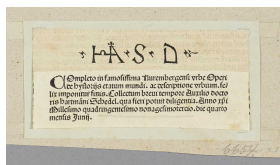 · H A · S · D ·
Completo in famosissima Nurembergensi vrbe Operi
de hystorijs etatum mundi. ac descriptione vrbium. fe-
lix imponitur finis. Collectum breui tempore Auxilio docto
ris hartmanni Schedel. qua fieri potuit diligentia. Anno xpi
Millesimo quadringentesimo nonagesimotercio. die quarto
mensis Junij.
6654